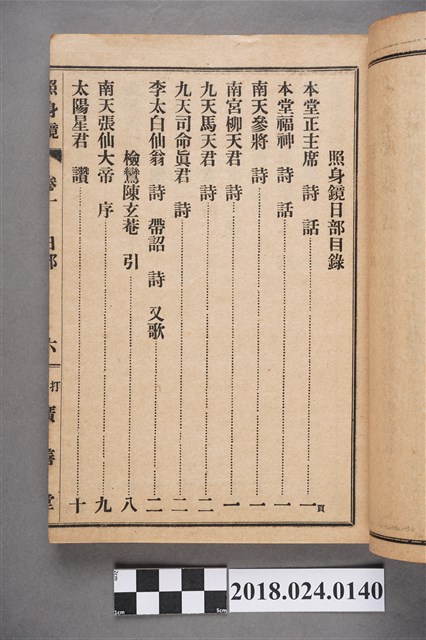 照身鏡日部目錄
本堂正主席 詩 話 一頁
本堂福神 詩 話 一
南天參將 詩 一
南宮柳天君 詩 一
九天馬天君 詩 二
九天司命眞君 詩 二
李太白仙翁 詩 帶詔 詩 又歌 二
檢鸞陳玄菴 引 八
南天張仙大帝 序 九
太陽星君 讚 十
照身鏡 卷一 日部 六 打 廣善堂
2cm
0
1cm
5cm
2018.024.0140